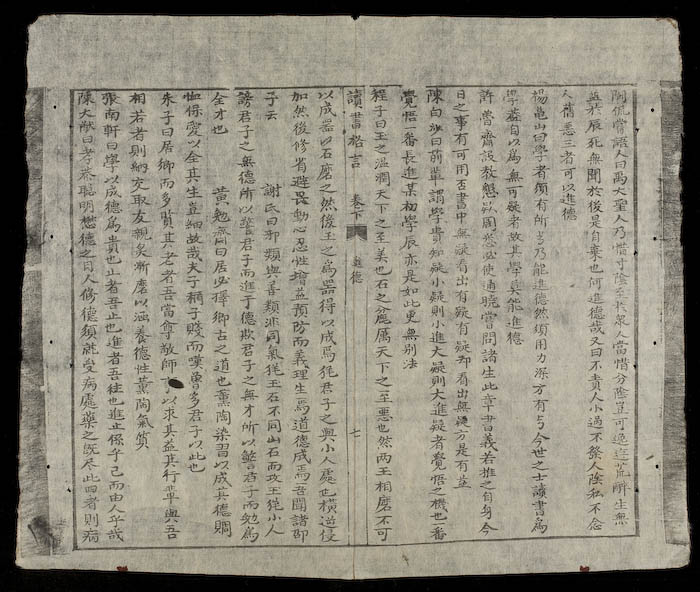 陶侃嘗語人曰禹大聖人乃惜寸陰至於衆人當惜分陰豈可逸遊荒醉生無
益於辰死無聞於後是自棄也何進德哉又曰不責人小過不發人陰私不念
人舊悪三者可以進德
楊龜山曰學者須有所疑乃能進德然須用力深方有疑今世之士讀書為
學蓋自以為無可疑者故其學莫能進德
許魯齋設教懇以周悉必使通曉嘗問諸生此章書義若推之自身今
日之事有可用否書中無疑看出有疑有疑却看出無疑方是有益
陳白沙曰前輩謂學貴知疑小疑則小進大疑則大進疑者覺悟之機也一番
覺悟一番長進某初學辰亦是如此更無別法
程子曰玉之溫潤天下之至美也石之麄厲天下之至悪也然兩玉相磨不可
讀書格言 卷下 進德 七
以成器以石磨之然後玉之為器得以成焉猶君子之與小人處也橫逆侵
加然後修省避畏動心忍性增益預防而義理生焉道德成焉吾聞諸邵
子云 謝氏曰邪類與善類非同氣猶玉石不同山石而攻玉猶小人
謗君子之無德所以誓君子而進于德欺君子之無才所以毖君子而勉為
全才也 黃勉齋曰居必擇鄉古之道也薰陶染習以成其德賙
恤保愛以全其生豈細故哉夫子稱子賤而嘆魯多君子以此也
朱子曰居鄉而多賢其老者吾當尊敬師事以求其益其行輩與吾
相若者則納交取友親炙漸磨以涵養德性薰陶氣質
張南軒曰學以成德為貴也止者吾止也進者吾往也進止係乎己而由人乎哉
陳大猷曰孝恭聰明懋德之目人修德須就受病處藥之旣尽此四者則病